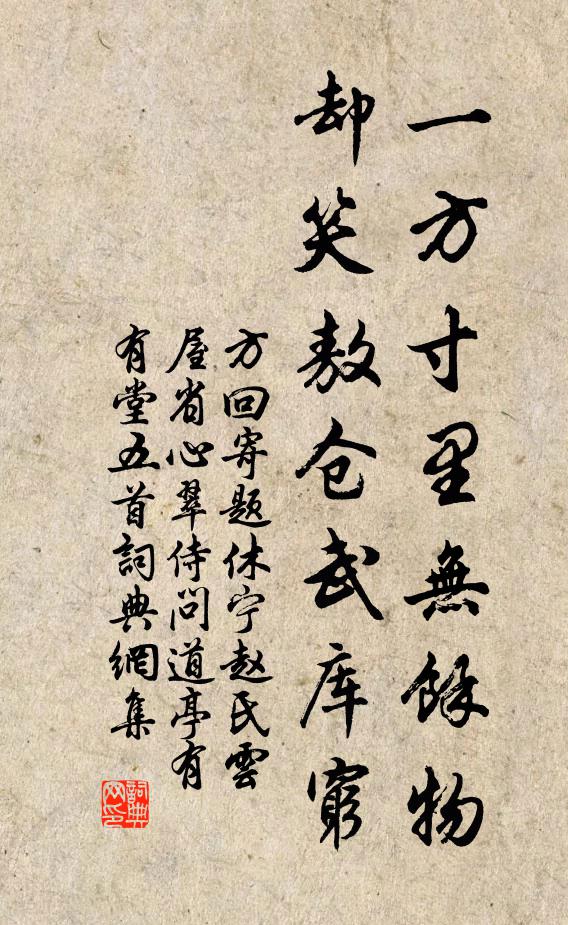 一方寸里無餘物
却笑敖仓武库窮
方回寄题休宁赵氏雲
屋省心翠侍问道亭有
有堂五首詞典網集
詞典网印